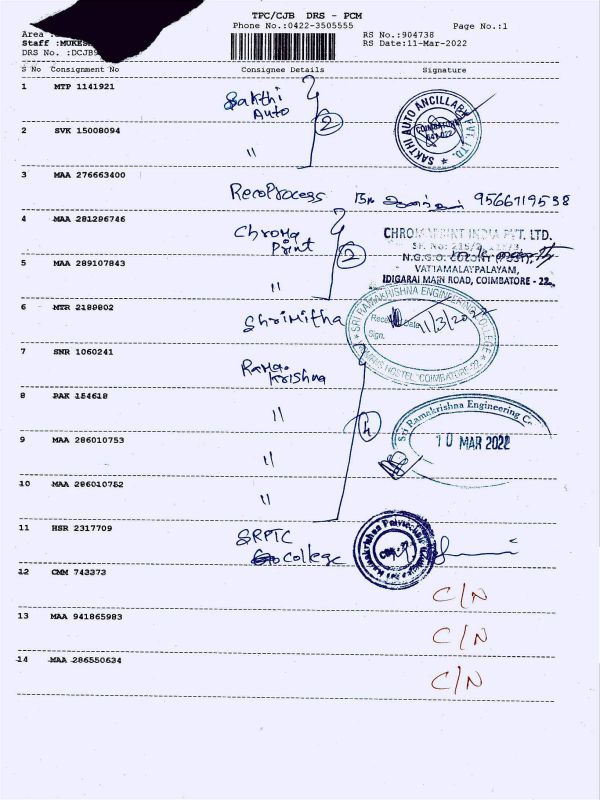 TPC/CJB DRS - PCM
Phone No.:0422-3505555 Page No.:1
Area :
RS No.:904738
Staff :MUKES
RS Date:11-Mar-2022
DRS No. :DCJB9
S No Consignment No Consignee Details Signature
1 MTP 1141921 Sakthi Auto
SAKTHI AUTO ANCILLARY PVT. LTD.
COIMBATORE
2 SVK 15008094 "
2
3 MAA 276663400 RecoProcess 9566719538
4 MAA 281296746 Chroma Print
CHROMAPRINT INDIA PVT. LTD.
SF. No: 215/2,
N.G.G.O. COLONY (POST),
VATTAMALAYPALAYAM,
IDIGARAI MAIN ROAD, COIMBATORE - 22.
5 MAA 289107843 "
2
6 MTR 2189802 Shrimitha
SRI RAMAKRISHNA ENGINEERING COLLEGE
Date 11/3/202
Sign.
HOSTEL COIMBATORE-22
7 SNR 1060241 Rama Krishna
8 PAK 154618 "
4
Sri Ramakrishna Engineering Co
10 MAR 2022
9 MAA 286010753 "
10 MAA 286010752 "
11 HSR 2317709 SRPTC College
Ramakrishna Polytechnic
12 CMM 743373 C/N
13 MAA 941865983 C/N
14 MAA 286550634 C/N